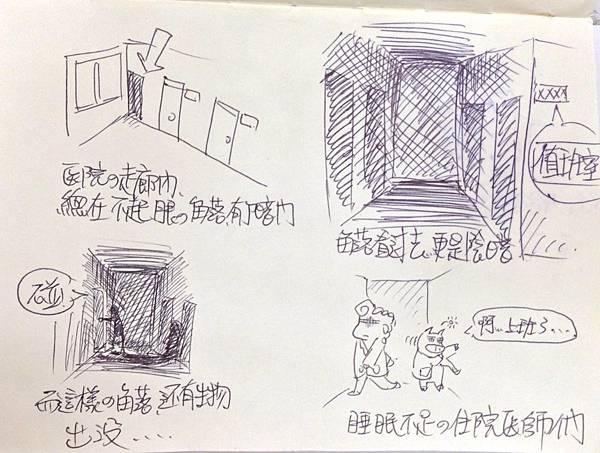 医院の走廊,
總在不起眼の角落,有暗門
XXXX
值班室
角落看過去,更是陰暗
碰
而這樣の角落,還有生物
出没....
啊...上班了...
睡眠不足の住院医師們